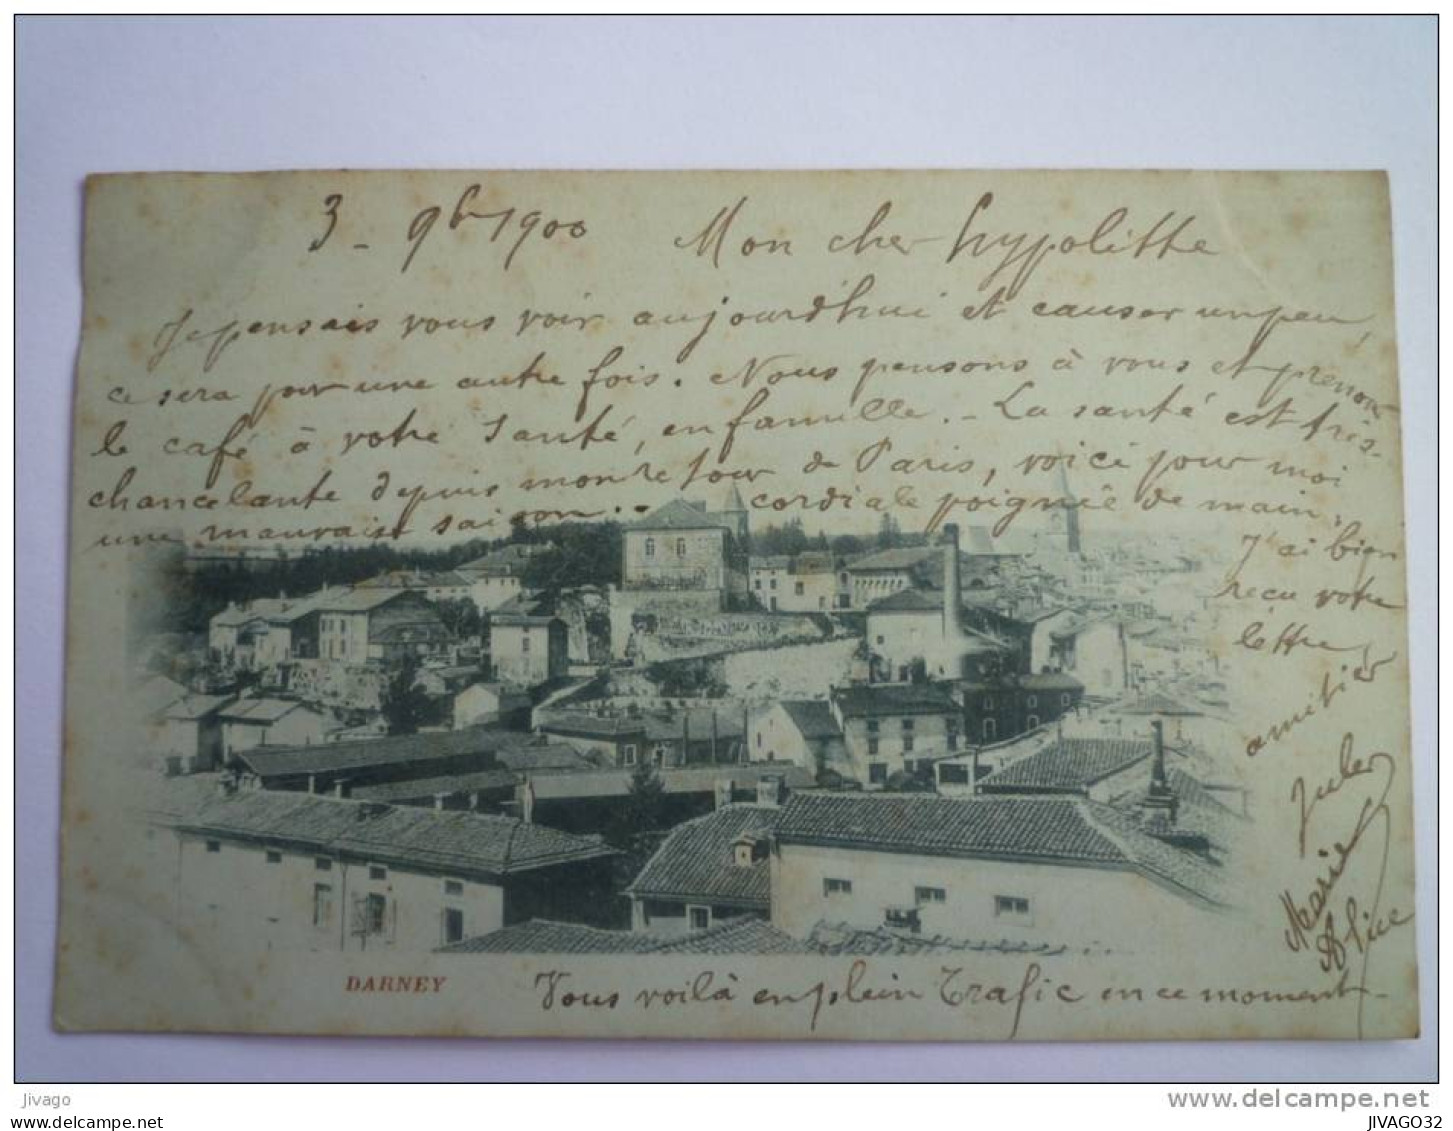 3 - 9bre 1900 Mon cher hyppolitte
Je pensais vous voir aujourd'hui et causer un peu,
ce sera pour une autre fois. Nous pensons à vous et prenons
le café à votre santé, en famille. - La santé est très-
chancelante depuis montre tour de Paris, voici pour moi
une mauvaise saison. - cordiale poignée de main,
J'ai bien
reçu votre
lettre
amitiés
Jules
Marie
Alice
DARNEY
Vous voilà en plein Trafic en ce moment -
Jivago
delcampe.net
Jivago
www.delcampe.net
JIVAGO32